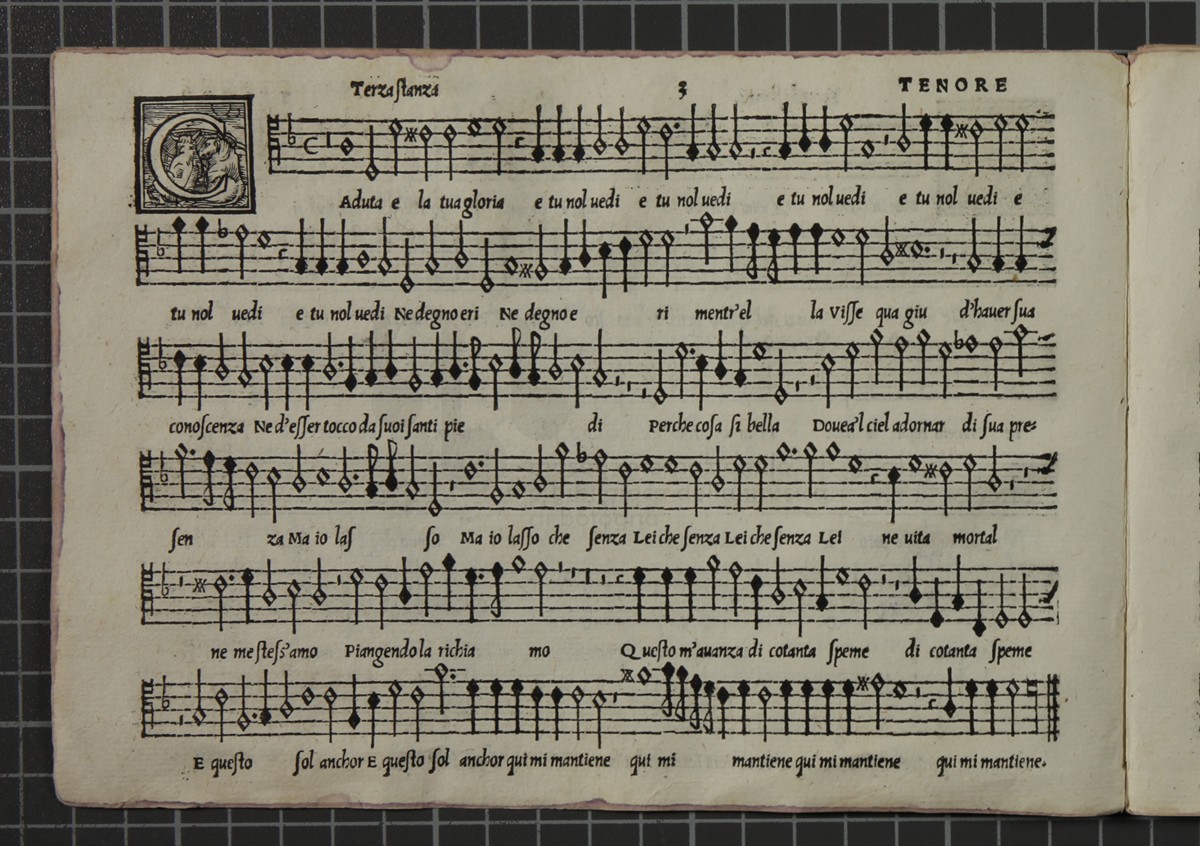 Terza stanza 3 TENORE
CAduta e la tua gloria e tu nol uedi e tu nol uedi e tu nol uedi e tu nol uedi e
tu nol uedi e tu nol uedi Ne degno eri Ne degno e ri mentr'el la visse qua giu d'hauer sua
conoscenza Ne d'esser tocco da suoi santi pie di Perche cosa si bella Douea'l ciel adornar di sua pre=
sen za Ma io las so Ma io lasso che senza Lei che senza Lei che senza Lei ne uita mortal
ne me stess'amo Piangendo la richia mo Questo m'auanza di cotanta speme di cotanta speme
E questo sol anchor E questo sol anchor qui mi mantiene qui mi mantiene qui mi mantiene qui mi mantiene.